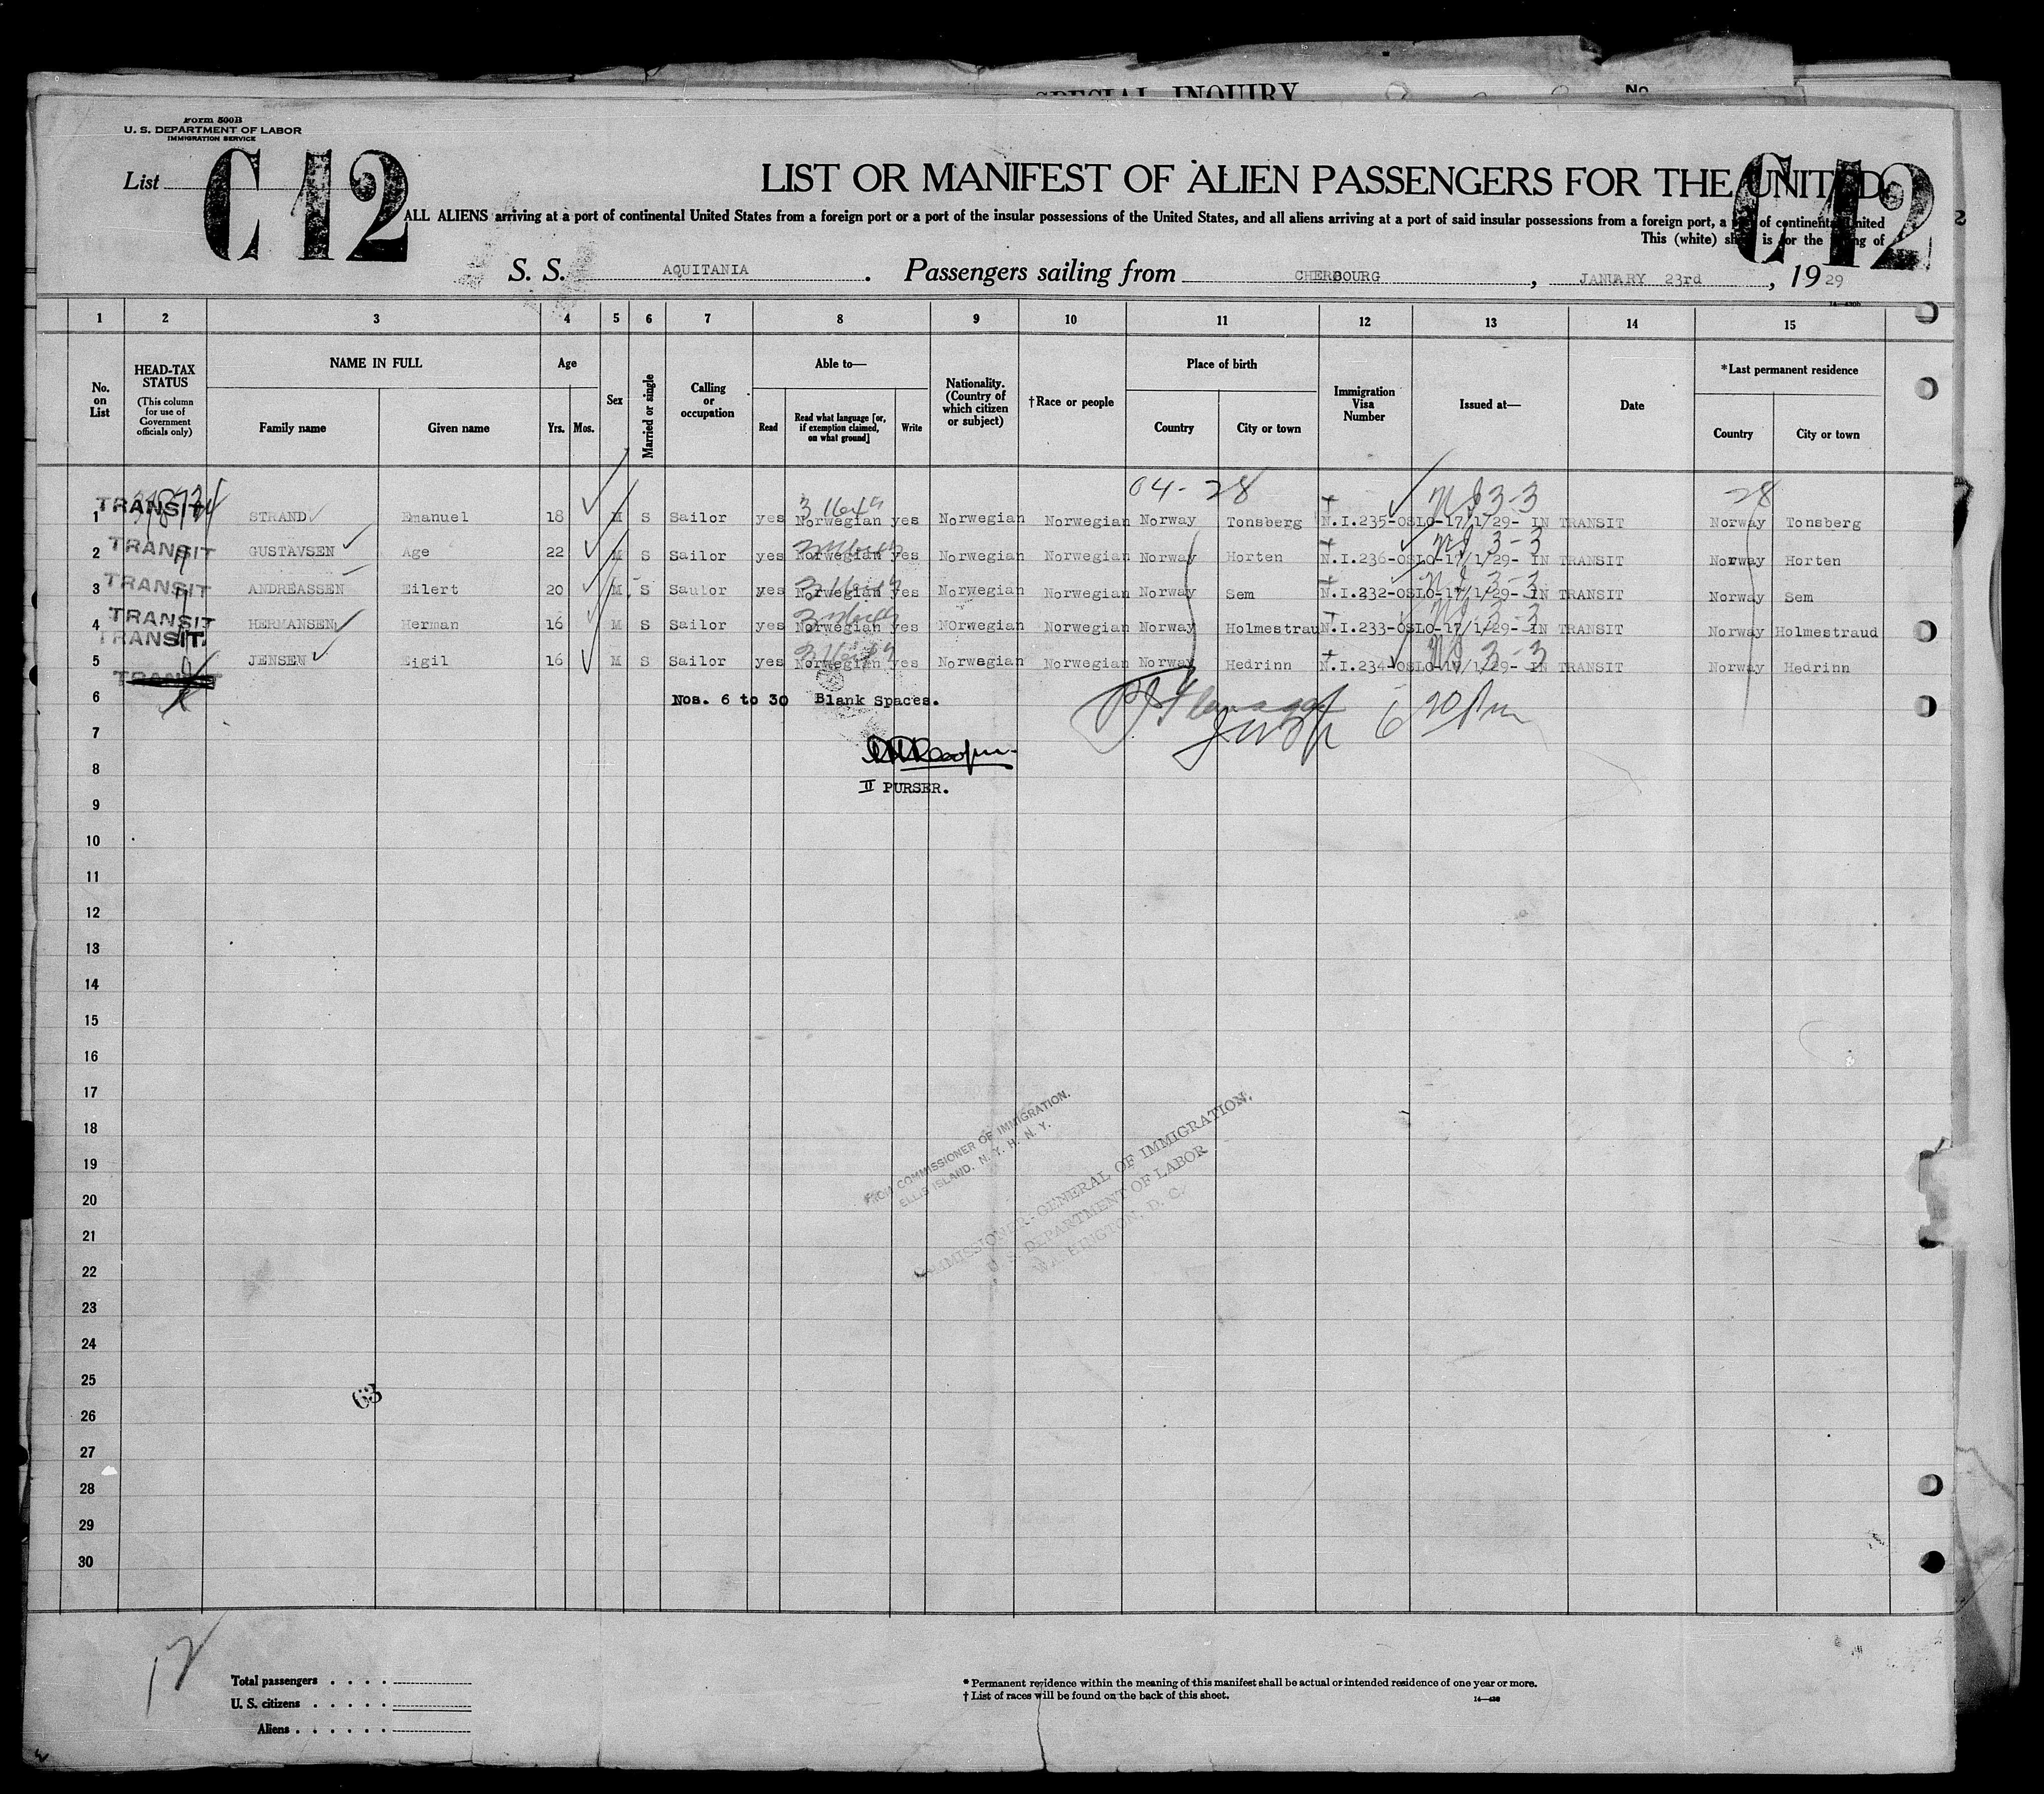 SPECIAL INQUIRY
No
Form 500B
U. S. DEPARTMENT OF LABOR
IMMIGRATION SERVICE
List
C 12
LIST OR MANIFEST OF ALIEN PASSENGERS FOR THE UNITED
C 12
ALL ALIENS arriving at a port of continental United States from a foreign port or a port of the insular possessions of the United States, and all aliens arriving at a port of said insular possessions from a foreign port, a of continental United
This (white) is for the of
S. S. AQUITANIA . Passengers sailing from CHERBOURG , JANUARY 23rd , 1929
1 2 3 4 5 6 7 8 9 10 11 12 13 14 15
No. on List
HEAD-TAX STATUS
(This column for use of Government officials only)
NAME IN FULL
Family name
Given name
Age
Yrs.
Mos.
Sex
Married or single
Calling or occupation
Able to—
Read
Read what language [or, if exemption claimed, on what ground]
Write
Nationality. (Country of which citizen or subject)
†Race or people
Place of birth
Country
City or town
Immigration Visa Number
Issued at—
Date
*Last permanent residence
Country
City or town
04-28
28
1 TRANSIT STRAND Emanuel 18 M S Sailor yes Norwegian yes Norwegian Norwegian Norway Tonsberg N.I.235-OSLO-17/1/29- IN TRANSIT Norway Tonsberg
2 TRANSIT GUSTAVSEN Age 22 M S Sailor yes Norwegian yes Norwegian Norwegian Norway Horten N.I.236-OSLO-17/1/29- IN TRANSIT Norway Horten
3 TRANSIT ANDREASSEN Eilert 20 M S Saulor yes Norwegian yes Norwegian Norwegian Norway Sem N.I.232-OSLO-17/1/29- IN TRANSIT Norway Sem
4 TRANSIT HERMANSEN Herman 16 M S Sailor yes Norwegian yes Norwegian Norwegian Norway Holmestrau N.I.233-OSLO-17/1/29- IN TRANSIT Norway Holmestraud
TRANSIT
5 JENSEN Eigil 16 M S Sailor yes Norwegian yes Norwegian Norwegian Norway Hedrinn N.I.234-OSLO-17/1/29- IN TRANSIT Norway Hedrinn
TRANSIT
6 Nos. 6 to 30 Blank Spaces.
7
8
II PURSER.
9
10
11
12
13
14
15
16
17
18
19
20
21
22
23
24
25
26
27
28
29
30
FROM COMMISSIONER OF IMMIGRATION.
ELLIS ISLAND, N. Y. H. N. Y.
COMMISSIONER-GENERAL OF IMMIGRATION,
U. S. DEPARTMENT OF LABOR
WASHINGTON, D. C.
63
12
Total passengers . . . .
U. S. citizens . . . . .
Aliens . . . . . .
* Permanent residence within the meaning of this manifest shall be actual or intended residence of one year or more.
† List of races will be found on the back of this sheet.
14—430